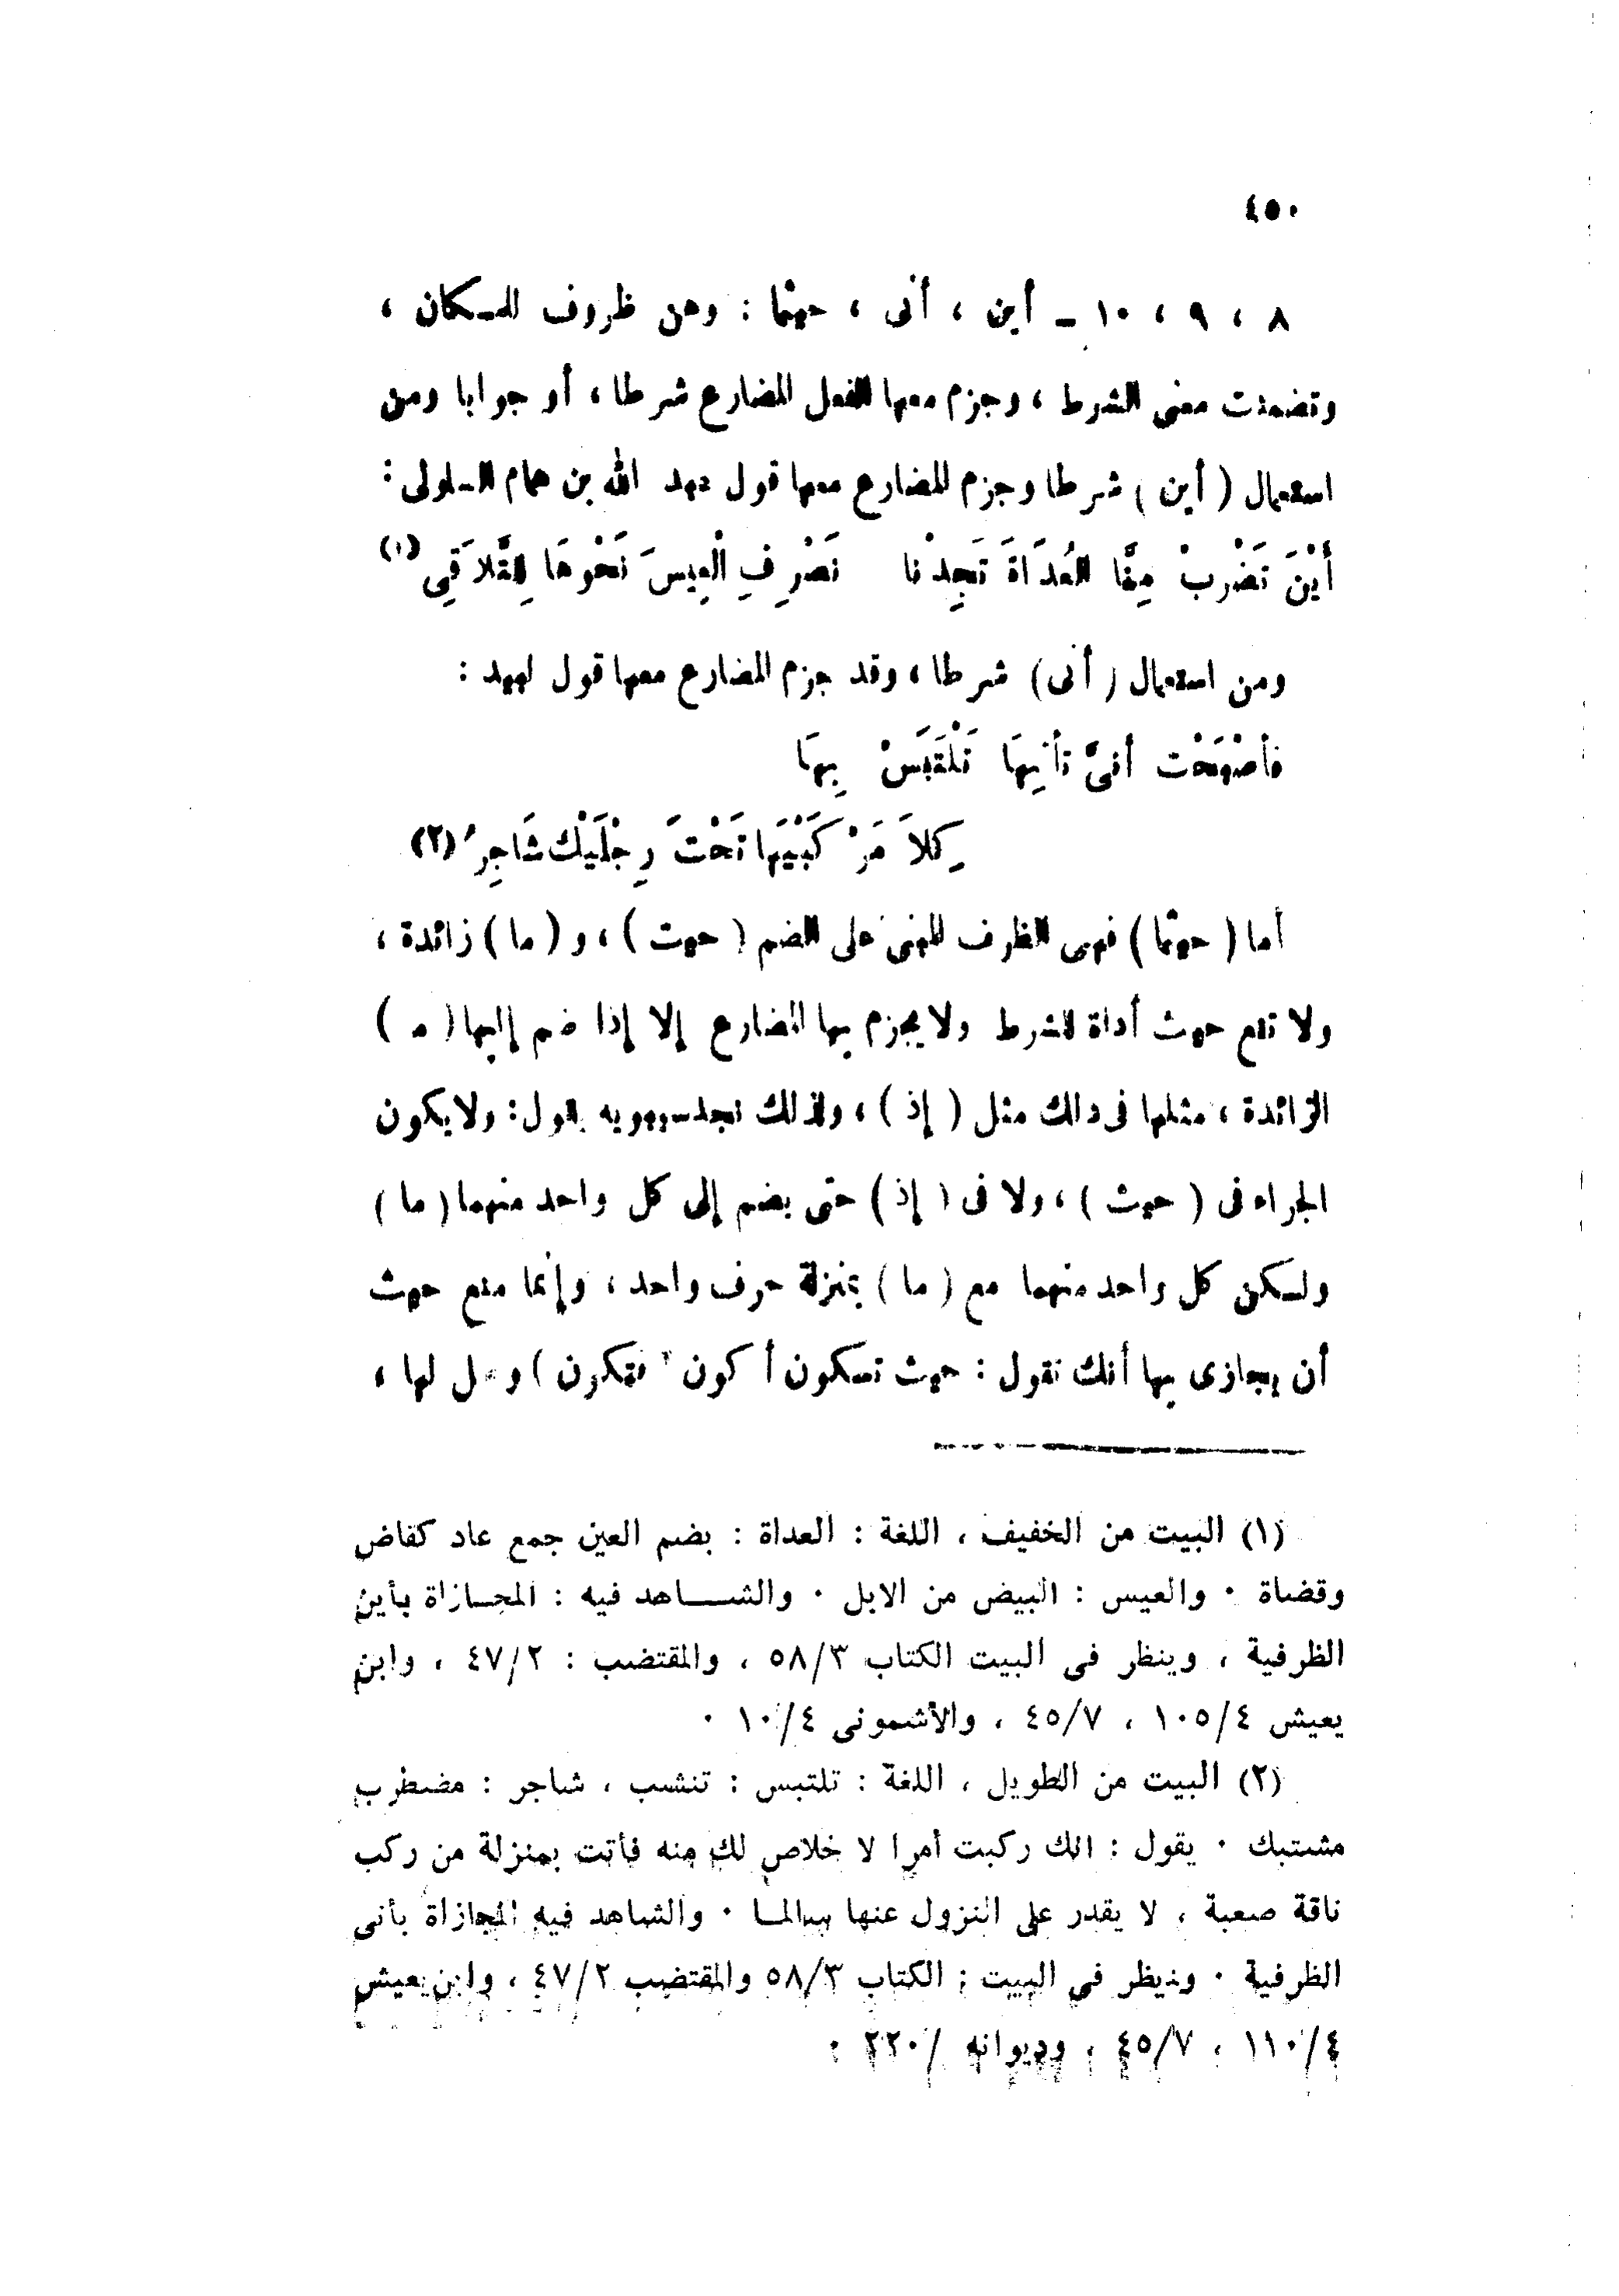 ٤٥٠
٨ ، ٩ ، ١٠ - أين ، أنى ، حيثما : وهن ظروف للمكان ،
وتضمنت معنى الشرط ، وجزم معها الفعل المضارع شرطا ، أو جوابا ومن
استعمال ( أين ) شرطا وجزم المضارع معها قول عبد الله بن همام السلولى :
أَيْنَ تَضْرِبْ مِنَّا الْعُدَاةَ تَجِدْنَا نَصْرِفِ الْعِيسَ نَحْوَهَا لِلتَّلَاقِى (١)
ومن استعمال ( أنى ) شرطا ، وقد جزم المضارع معها قول لبيد :
فأصْبَحْت أنىَّ تأتِهَا تَلْتَبَسْ بِهَا
كِلاَ مَرْكَبَيْهَا تَحْتَ رِجْلَيْك شَاجِرُ (٢)
أما ( حيثما ) فهى الظرف المبنى على الضم ( حيث ) ، و ( ما ) زائدة ،
ولا تقع حيث أداة للشرط ولا يجزم بها المضارع إلا إذا ضم إليها ( ما )
الزائدة ، مثلها فى ذلك مثل ( إذ ) ، ولذلك نجد سيبويه يقول : ولا يكون
الجراء فى ( حيث ) ، ولا فى ( إذ ) حتى يضم إلى كل واحد منهما ( ما )
ولكن كل واحد منهما مع ( ما ) بمنزلة حرف واحد ، وإنما منع حيث
أن يجازى بها أنك تقول : حيث تكون أكون فتكون ) وصل لها ،
(١) البيت من الخفيف ، اللغة : العداة : بضم العين جمع عاد كفاض
وقضاة ٠ والعيس : البيض من الابل ٠ والشاهد فيه : المجازاة بأين
الظرفية ، وينظر فى البيت الكتاب ٥٨/٣ ، والمقتضب : ٤٧/٢ ، وابن
يعيش ١٠٥/٤ ، ٤٥/٧ ، والأشمونى ١٠/٤ ٠
(٢) البيت من الطويل ، اللغة : تلتبس : تنشب ، شاجر : مضطرب
مشتبك ٠ يقول : انك ركبت أمرا لا خلاص لك منه فأنت بمنزلة من ركب
ناقة صعبة ، لا يقدر على النزول عنها سالما ٠ والشاهد فيه المجازاة بأنى
الظرفية ٠ وينظر فى البيت : الكتاب ٥٨/٣ والمقتضب ٤٧/٢ ، وابن يعيش
١١٠/٤ ، ٤٥/٧ ، وديوانه /٢٢٠ ٠